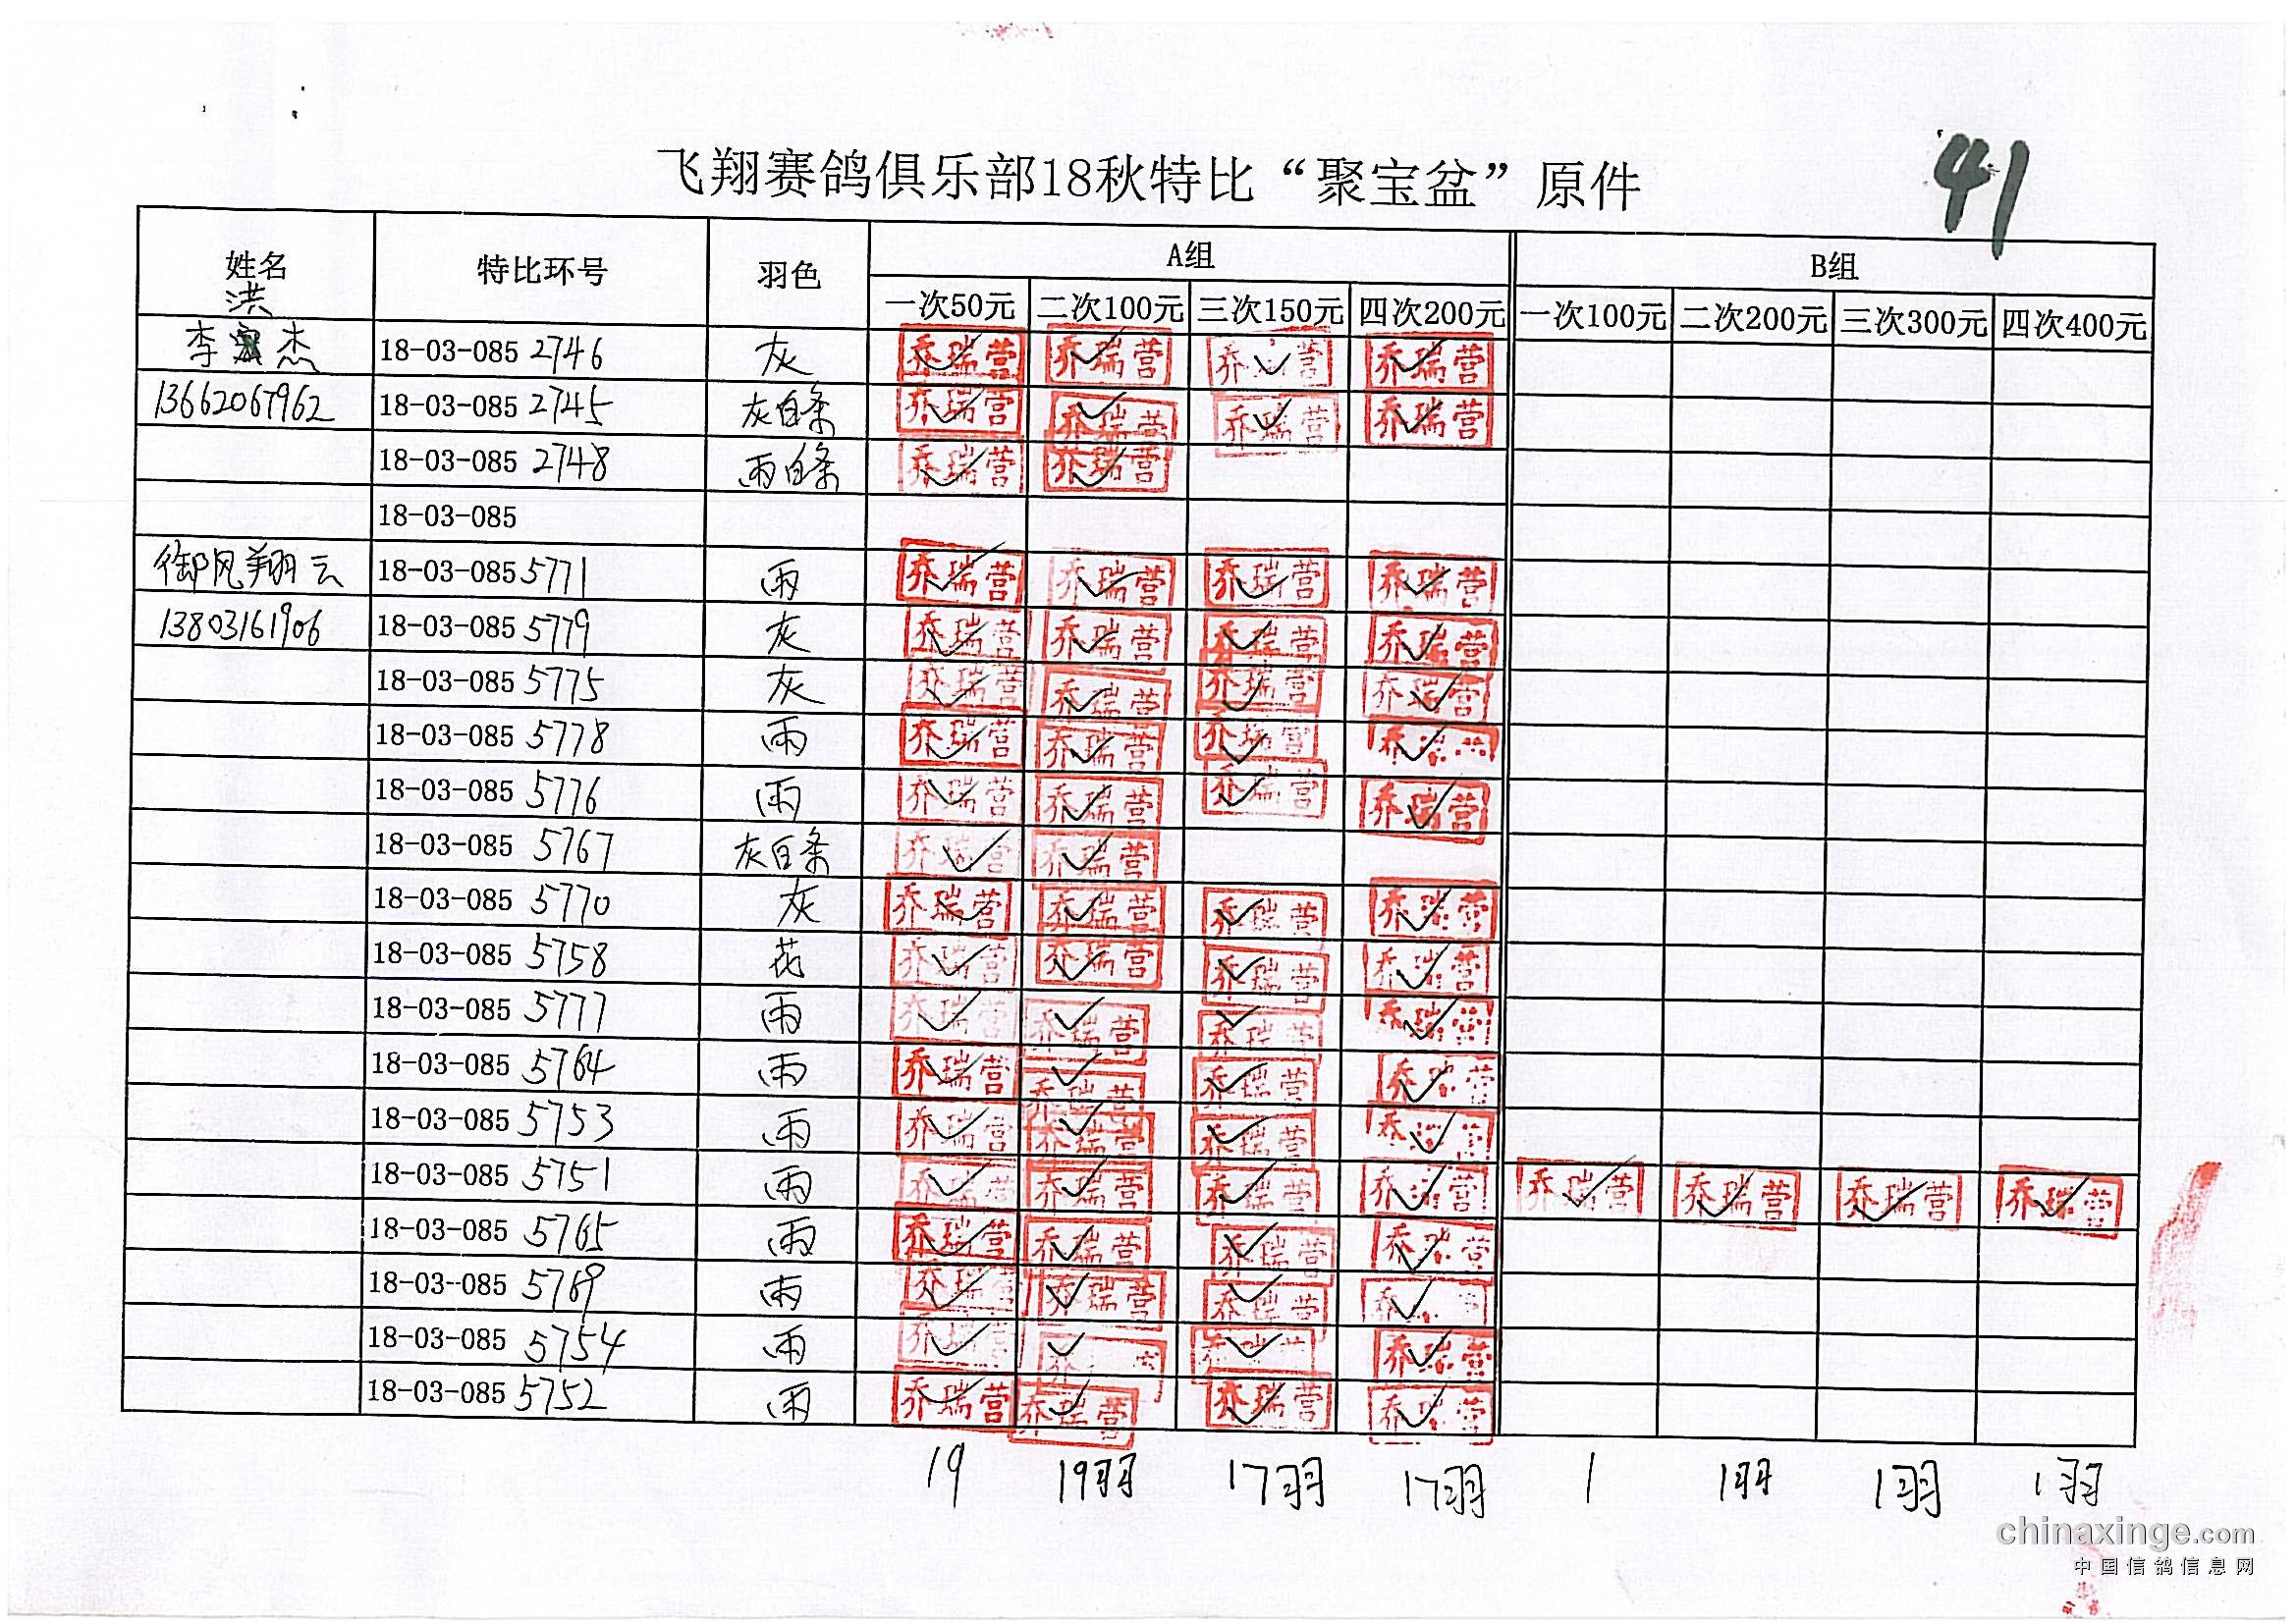 飞翔赛鸽俱乐部18秋特比“聚宝盆”原件 41
姓名 特比环号 羽色 A组 B组
一次50元 二次100元 三次150元 四次200元 一次100元 二次200元 三次300元 四次400元
洪
李杰 18-03-085 2746 灰 乔瑞营✓ 乔瑞营✓ 乔瑞营✓ 乔瑞营✓
13662067962 18-03-085 2745 灰白条 乔瑞营✓ 乔瑞营✓ 乔瑞营✓ 乔瑞营✓
18-03-085 2748 雨白条 乔瑞营✓ 乔瑞营✓
18-03-085
御风翔云 18-03-085 5771 雨 乔瑞营✓ 乔瑞营✓ 乔瑞营✓ 乔瑞营✓
13803161906 18-03-085 5779 灰 乔瑞营✓ 乔瑞营✓ 乔瑞营✓ 乔瑞营✓
18-03-085 5775 灰 乔瑞营✓ 乔瑞营✓ 乔瑞营✓ 乔瑞营✓
18-03-085 5778 雨 乔瑞营✓ 乔瑞营✓ 乔瑞营✓ 乔瑞营✓
18-03-085 5776 雨 乔瑞营✓ 乔瑞营✓ 乔瑞营✓ 乔瑞营✓
18-03-085 5767 灰白条 乔瑞营✓ 乔瑞营✓
18-03-085 5770 灰 乔瑞营✓ 乔瑞营✓ 乔瑞营✓ 乔瑞营✓
18-03-085 5758 花 乔瑞营✓ 乔瑞营✓ 乔瑞营✓ 乔瑞营✓
18-03-085 5777 雨 乔瑞营✓ 乔瑞营✓ 乔瑞营✓ 乔瑞营✓
18-03-085 5764 雨 乔瑞营✓ 乔瑞营✓ 乔瑞营✓ 乔瑞营✓
18-03-085 5753 雨 乔瑞营✓ 乔瑞营✓ 乔瑞营✓ 乔瑞营✓
18-03-085 5751 雨 乔瑞营✓ 乔瑞营✓ 乔瑞营✓ 乔瑞营✓ 乔瑞营✓ 乔瑞营✓ 乔瑞营✓ 乔瑞营✓
18-03-085 5765 雨 乔瑞营✓ 乔瑞营✓ 乔瑞营✓ 乔瑞营✓
18-03-085 5769 雨 乔瑞营✓ 乔瑞营✓ 乔瑞营✓ 乔瑞营✓
18-03-085 5754 雨 乔瑞营✓ 乔瑞营✓ 乔瑞营✓ 乔瑞营✓
18-03-085 5752 雨 乔瑞营✓ 乔瑞营✓ 乔瑞营✓ 乔瑞营✓
19 19羽 17羽 17羽 1 1羽 1羽 1羽
chinaxinge.com
中国信鸽信息网